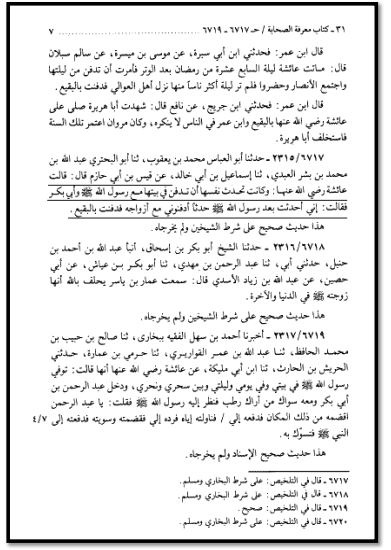 ٣١ ـ كتاب معرفة الصحابة / حـ ٦٧١٧ ـ ٦٧١٩ ٧
قال ابن عمر: فحدثني ابن أبي سبرة، عن موسى بن ميسرة، عن سالم سبلان
قال: ماتت عائشة ليلة السابع عشرة من رمضان بعد الوتر فأمرت أن تدفن من ليلتها
واجتمع الأنصار وحضروا فلم تر ليلة أكثر ناساً منها نزل أهل العوالي فدفنت بالبقيع.
قال ابن عمر: فحدثني ابن جريج، عن نافع قال: شهدت أبا هريرة صلى على
عائشة رضي الله عنها بالبقيع وابن عمر في الناس لا ينكره، وكان مروان اعتمر تلك السنة
فاستخلف أبا هريرة.
٢٣١٥/٦٧١٧ ـ حدثنا أبو العباس محمد بن يعقوب، ثنا أبو البختري عبد الله بن
محمد بن بشر العبدي، ثنا إسماعيل بن أبي خالد، عن قيس بن أبي حازم قال: قالت
عائشة رضي الله عنها: وكانت تحدث نفسها أن تدفن في بيتها مع رسول الله ﷺ وأبي بكر
فقالت: إني أحدثت بعد رسول الله ﷺ حدثاً أدفنوني مع أزواجه فدفنت بالبقيع.
هذا حديث صحيح على شرط الشيخين ولم يخرجاه.
٢٣١٦/٦٧١٨ ـ حدثنا الشيخ أبو بكر بن إسحاق، أنبأ عبد الله بن أحمد بن
حنبل، حدثني أبي، ثنا عبد الرحمن بن مهدي، ثنا أبو بكر بن عياش، عن أبي
حصين، عن عبد الله بن زياد الأسدي قال: سمعت عمار بن ياسر يحلف بالله أنها
زوجته ﷺ في الدنيا والآخرة.
هذا حديث صحيح على شرط الشيخين ولم يخرجاه.
٢٣١٧/٦٧١٩ ـ أخبرنا أحمد بن سهل الفقيه ببخارى، ثنا صالح بن حبيب بن
محمد الحافظ، ثنا عبد الله بن عمر القواريري، ثنا حرمي بن عمارة، حدثني
الحريش بن الحارث، ثنا ابن أبي مليكة، عن عائشة رضي الله عنها أنها قالت: توفي
رسول الله ﷺ في بيتي وفي يومي وليلتي وبين سحري ونحري، ودخل عبد الرحمن بن
أبي بكر ومعه سواك من أراك رطب فنظر إليه رسول الله ﷺ فقلت: يا عبد الرحمن
اقضمه من ذلك المكان فدفعه إلي / فناولته إياه فرده إلي فقضمته وسويته فدفعته إلى ٤/٧
النبي ﷺ فتسوّك به.
هذا حديث صحيح الإسناد ولم يخرجاه.
٦٧١٧ ـ قال في التلخيص: على شرط البخاري ومسلم.
٦٧١٨ ـ قال في التلخيص: على شرط البخاري ومسلم.
٦٧١٩ ـ قال في التلخيص: صحيح.
٦٧٢٠ ـ قال في التلخيص: على شرط البخاري ومسلم.